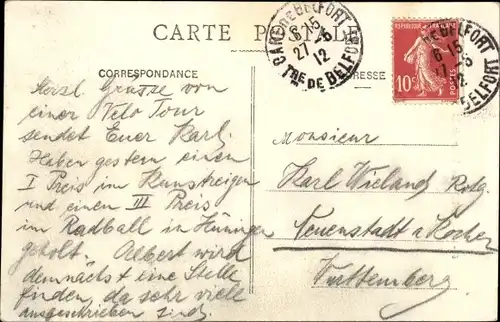 CARTE POSTALE
GARE DE BELFORT
6-15
27-5
12
TRE DE BELFORT
REPUBLIQUE FRANCAISE
10c
POSTES
CORRESPONDANCE
ADRESSE
Herzl. Grüsse von
einer Velo Tour
sendet Euer Karl.
Haben gestern einen
I Preis im Kunstreigen
und einen III Preis
im Radball in Hüningen
geholt. Albert wird
demnächst eine Stelle
finden, da sehr viele
ausgeschrieben sind.
Monsieur
Karl Wieland
Neuenstadt a Kocher
Württemberg